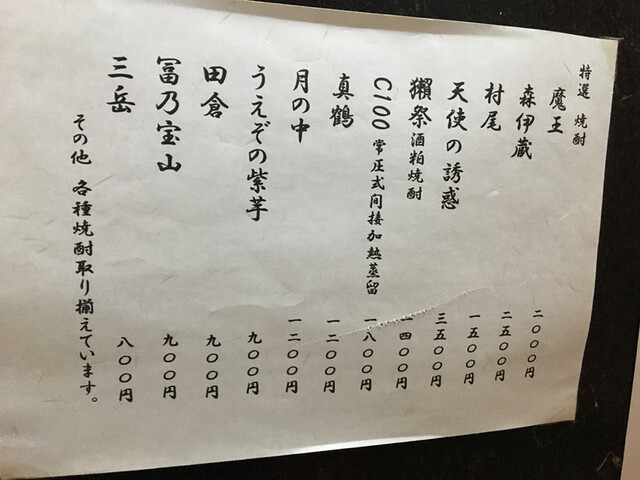 特選 焼酎
魔王 二〇〇〇円
森伊蔵 二五〇〇円
村尾 一五〇〇円
天使の誘惑 三五〇〇円
獺祭 酒粕焼酎
C100 常圧式间接加熱蒸留 一八〇〇円
真鶴 一二〇〇円
月の中 一二〇〇円
うえぞの紫芋 九〇〇円
田倉 九〇〇円
冨乃宝山 九〇〇円
三岳 八〇〇円
その他 各種焼酎取り揃えています。